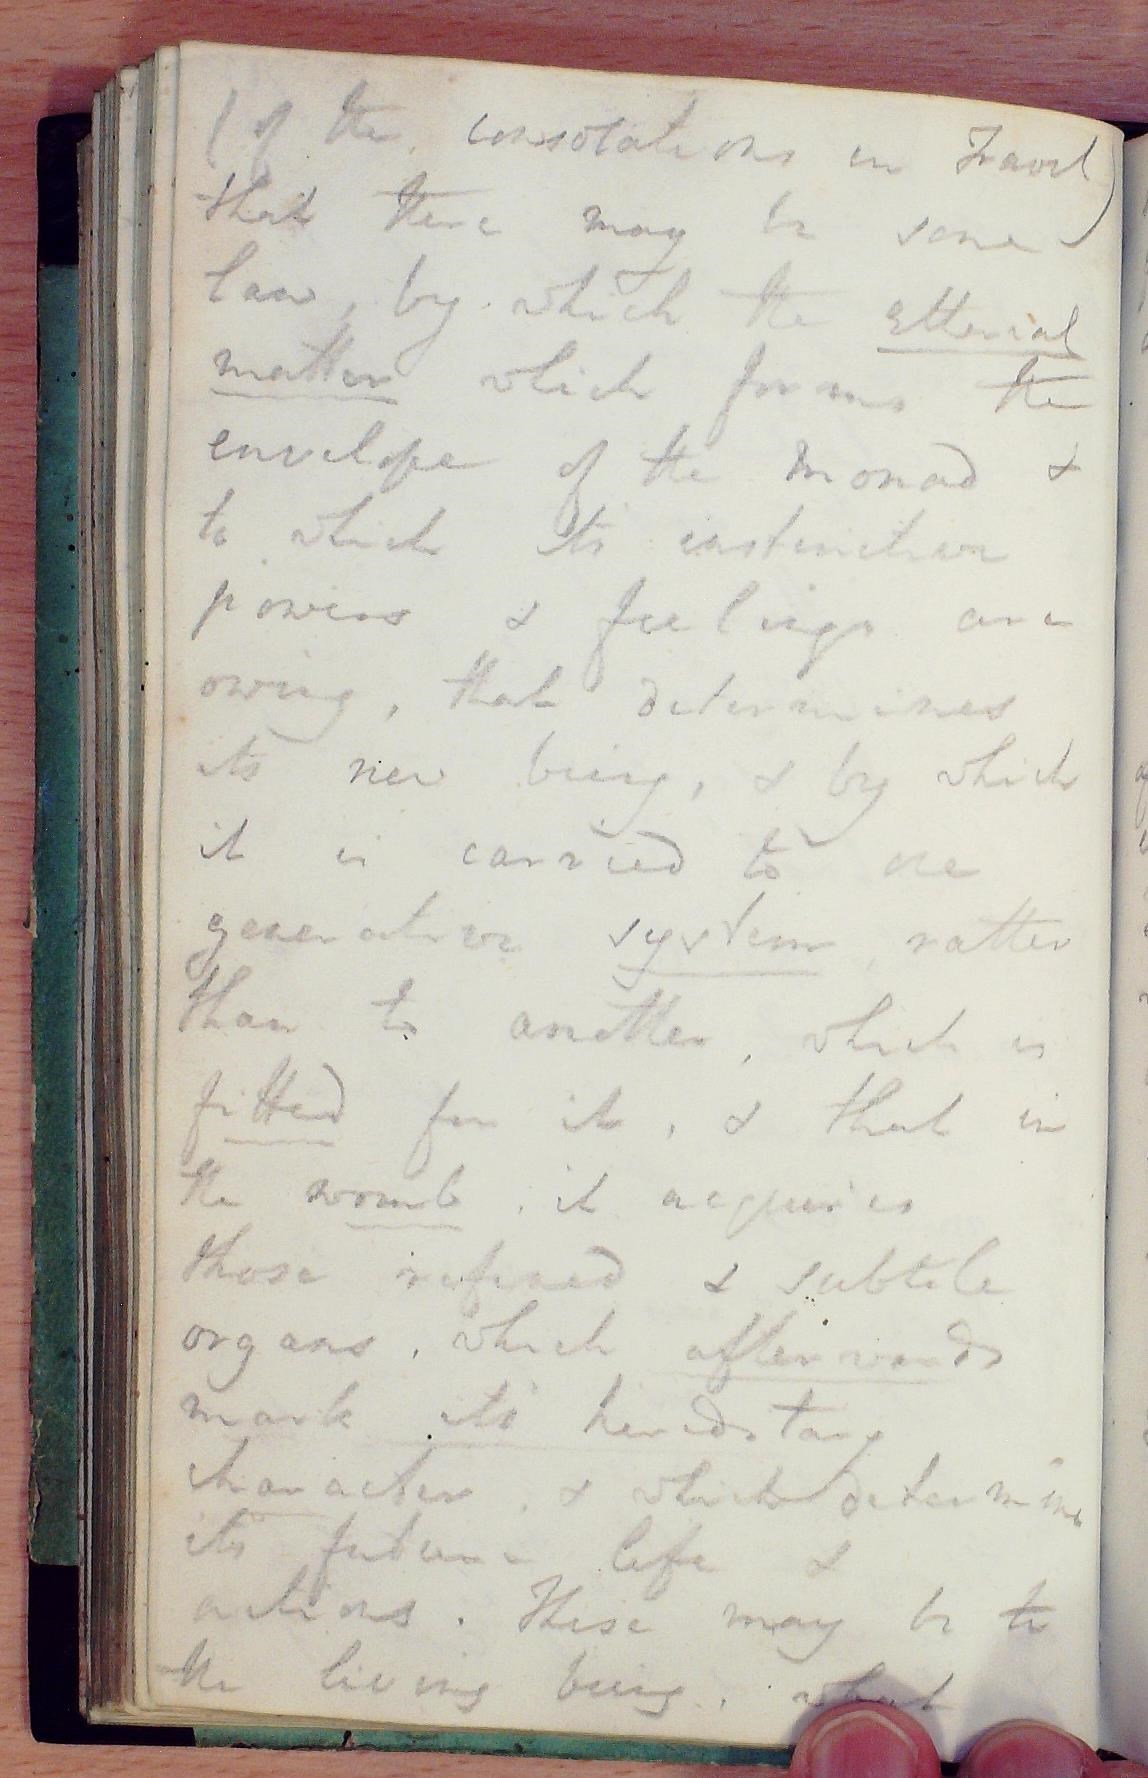 (of the consolations in Travel)
that there may be some
law, by which the etherial
matter which forms the
envelope of the monad &
to which its instinctive
powers & feelings are
owing, that determines
its new being, & by which
it is carried to one
generative system, rather
than to another, which is
fitted for it, & that in
the womb, it acquires
those refined & subtile
organs, which afterwards
mark its hereditary
character, & which determine
its future life &
actions. These may be to
the living being, what